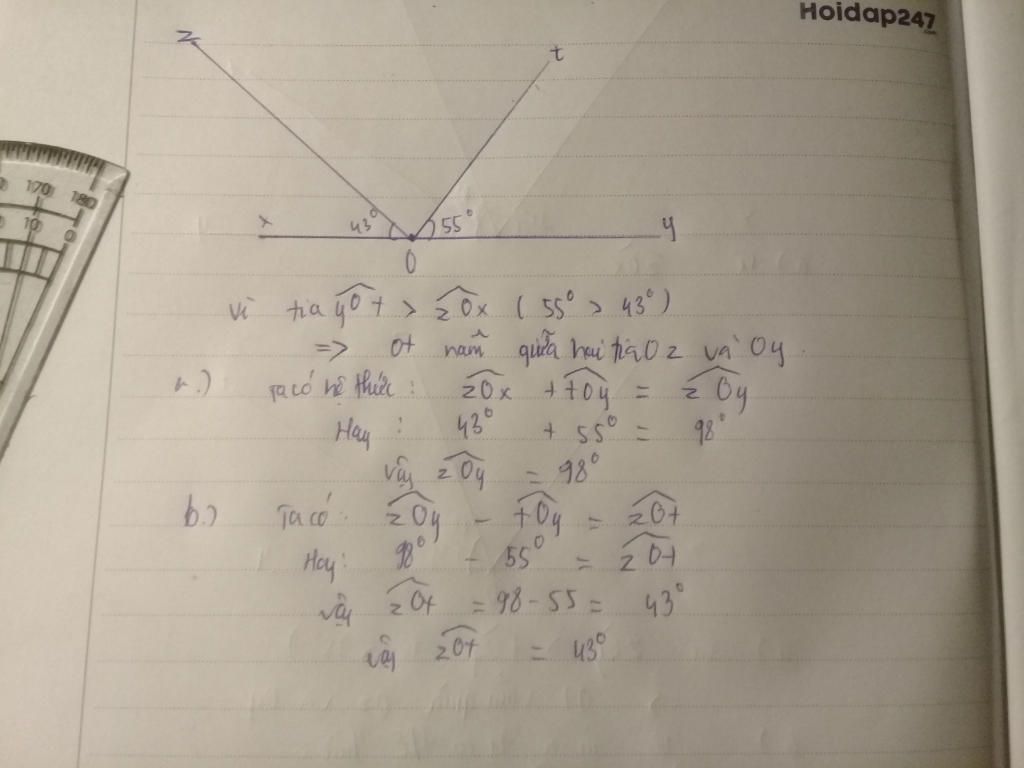 Hoidap247
.com
z
t
170 180
10 0
x 43° 55° y
O
Vì tia yOt > zOx ( 55° > 43° )
=> Ot nằm giữa hai tia Oz và Oy.
a.) Ta có hệ thức: zOx + tOy = zOy
Hay : 43° + 55° = 98°
vậy zOy = 98°
b.) Ta có: zOy - tOy = zOt
Hay: 98° - 55° = zOt
vậy zOt = 98 - 55 = 43°
vậy zOt = 43°